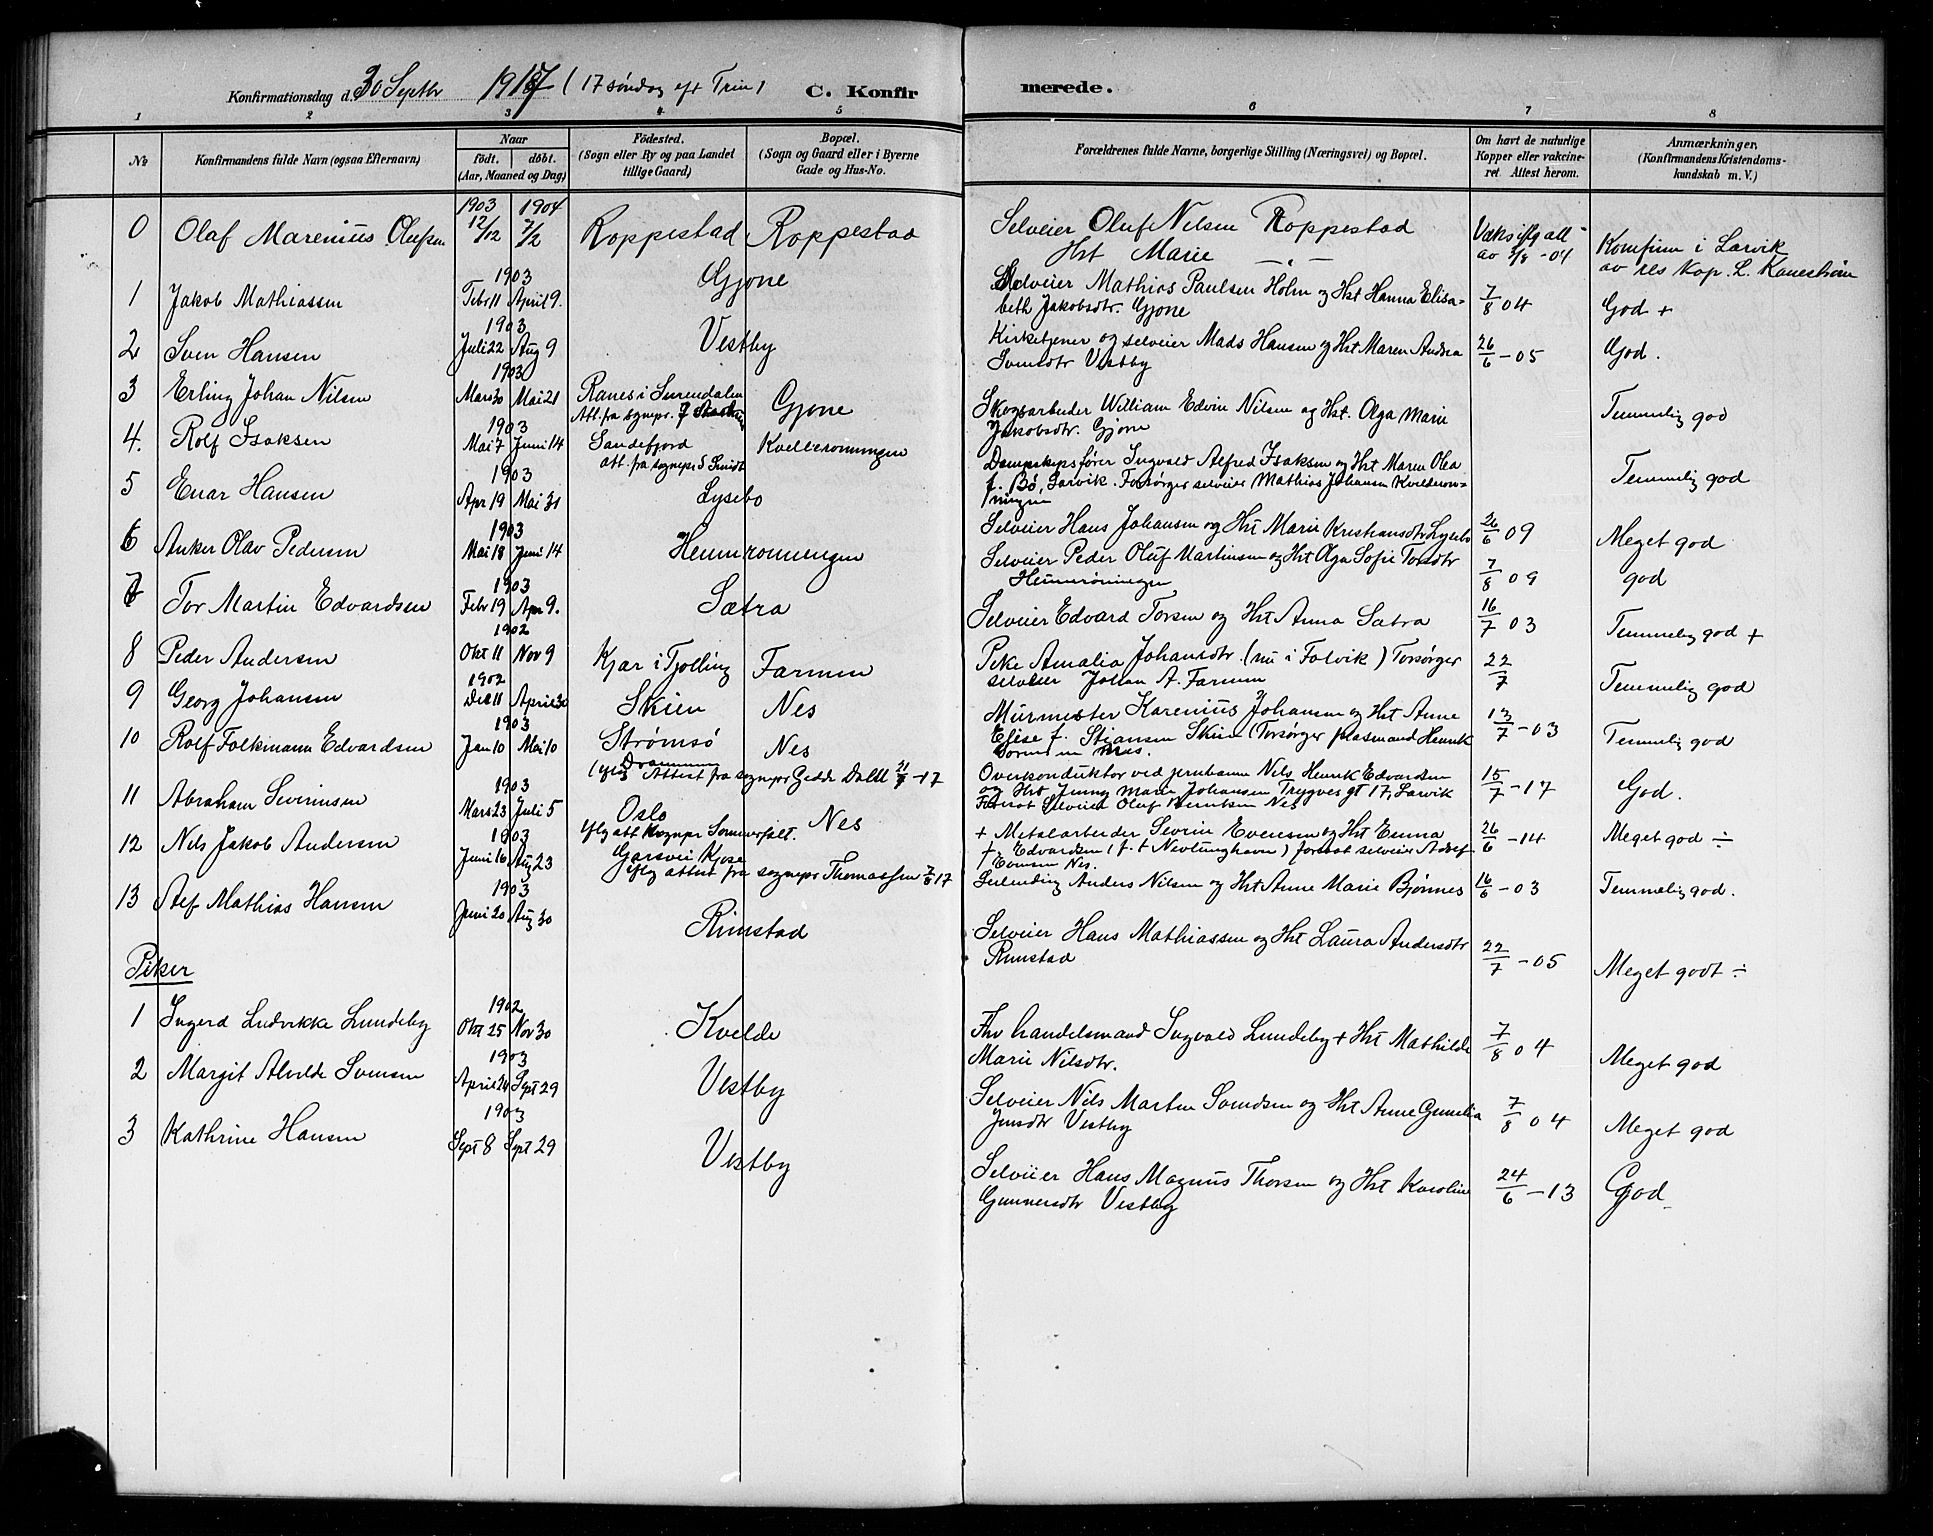 Konfirmationsdag d. 30 Septbr 1917 (17 søndag eft Trin) C. Konfirmerede.
1 2 3 4 5 6 7 8
No
Konfirmandens fulde Navn (ogsaa Efternavn)
Naar
födt. döbt.
(Aar, Maaned og Dag)
Födested.
(Sogn eller By og paa Landet
tillige Gaard)
Bopæl.
(Sogn og Gaard eller i Byerne
Gade og Hus-No.
Forældrenes fulde Navne, borgerlige Stilling (Næringsvei) og Bopæl.
Om havt de naturlige
Kopper eller vakcine-
ret Attest herom.
Anmærkninger,
(Konfirmandens Kristendoms-
kundskab m. V.)
0 Olaf Marenius Olufsen 1903 12/12 1904 7/2 Roppestad Roppestad Selveier Oluf Nilsen Roppestad
Hst Marie — " —
Vaks iflg att
av 7/8 - 04
Konfirm i Larvik
av res Kap. L.
1 Jakob Mathiassen 1903 Febr 11 April 9. Gjone Selveier Mathias Paulsen Holm og Hst Hanna Elisa-
beth Jakobsdtr. Gjone 7/8 04 God +
2 Sven Hansen 1903 Juli 22 Aug 9 Vestby Kirketjener og selveier Mads Hansen og Hst Maren Andrea
Svensdtr Vestby 26/6 - 05 God.
3 Erling Johan Nilsen 1903 Mars 30 Mai 21 Ranes i Surendalen
Att. fra sognepr. Gjone Skogsarbeider William Edvin Nilsen og Hst. Olga Marie
Jakobsdtr. Gjone Temmelig god
4. Rolf Isaksen 1903 Mai 7 Juni 14 Sandefjord
att. fra sognepr S Smidt Kvelleronningen Dampskipsfører Ingvald Alfred Isaksen og Hst Maren Olea
f. Bø, Larvik. Forsørger selveier Mathias Johansen Kvelderon-
ningen Temmelig god
5 Einar Hansen 1903 Apr 19 Mai 31 Lysebo Selveier Hans Johansen og Hst Marie Kristiansdtr Lysebo 26/6 09 Meget god
6 Anker Olav Pedersen 1903 Mai 18 Juni 14 Heumronningen Selveier Peder Oluf Martinsen og Hst Olga Sofie Torsdtr
Heumrøningen 7/8 09 god
7 Tor Martin Edvardsen 1903 Febr 19 Apr 9. Sætra Selveier Edvard Torsen og Hst Anna Sætra 16/7 03 Temmelig god +
8 Peder Andersen 1902 Okt 11 Nov 9 Kjær i Tjølling Farmen Pike Amalia Johansdtr (nu i Falvik) Forsørger
selveier Johan A. Farmen 22/7 Temmelig god
9 Georg Johansen 1902 Des 11 April 30 Skien Nes Murmester Karenius Johansen og Hst Anne
Elise f. Stiansen Skien (Forsørger plasmand Henrik
Nes. 13/7 - 03 Temmelig god
10 Rolf Folkmann Edvardsen 1903 Jan 10 Mai 10 Strømsø
Drammen
(iflg Attest fra sognepr Gedde Dahl 21/9 - 17 Nes Overkonduktør ved jernbanen Nils Henrik Edvardsen
og Hst Jenny Marie Johansen Trygves gt 17, Larvik
Forsørg Selveier Oluf Henriksen Nes 15/7 - 17 God.
11 Abraham Severinsen 1903 Mars 23 Juli 5 Oslo
iflg att fra sognepr Sommerfelt. Nes + Metalarbeider Severin Evensen og Hst Emma
f. Edvardsen (f. t Nevlunghavn) forsørg selveier Adolf
Evensen Nes. 26/6 - 14 Meget god ÷
12 Nils Jakob Andersen 1903 Juni 16 Aug 23 Gårsvei Kjose
iflg attest fra sognepr Thomassen 7/8 17 Selveier Anders Nilsen og Hst Anne Marie Bjønnes 16/6 - 03 Temmelig god.
13 Alf Mathias Hansen 1903 Juni 20 Aug 30 Rimstad Selveier Hans Mathiassen og Hst Laura Andersdtr
Rimstad 22/7 - 05 Meget godt ÷
Piker
1 Ingerd Ludvikke Lundeby 1902 Okt 25 Nov 30 Kvelde Fhv handelsmand Ingvald Lundeby + Hst Mathilde
Marie Nilsdtr. 7/8 04 Meget god
2 Margit Alvilde Svensen 1903 April 24 Sept 29 Vestby Selveier Nils Martin Svendsen og Hst Anne Gunelia
Jensdtr Vestby 7/8 04 Meget god
3 Kathrine Hansen 1903 Sept 8 Sept 29 Vestby Selveier Hans Magnus Thorsen og Hst Karoline
Gunnersdtr Vestby 24/6 - 13 God